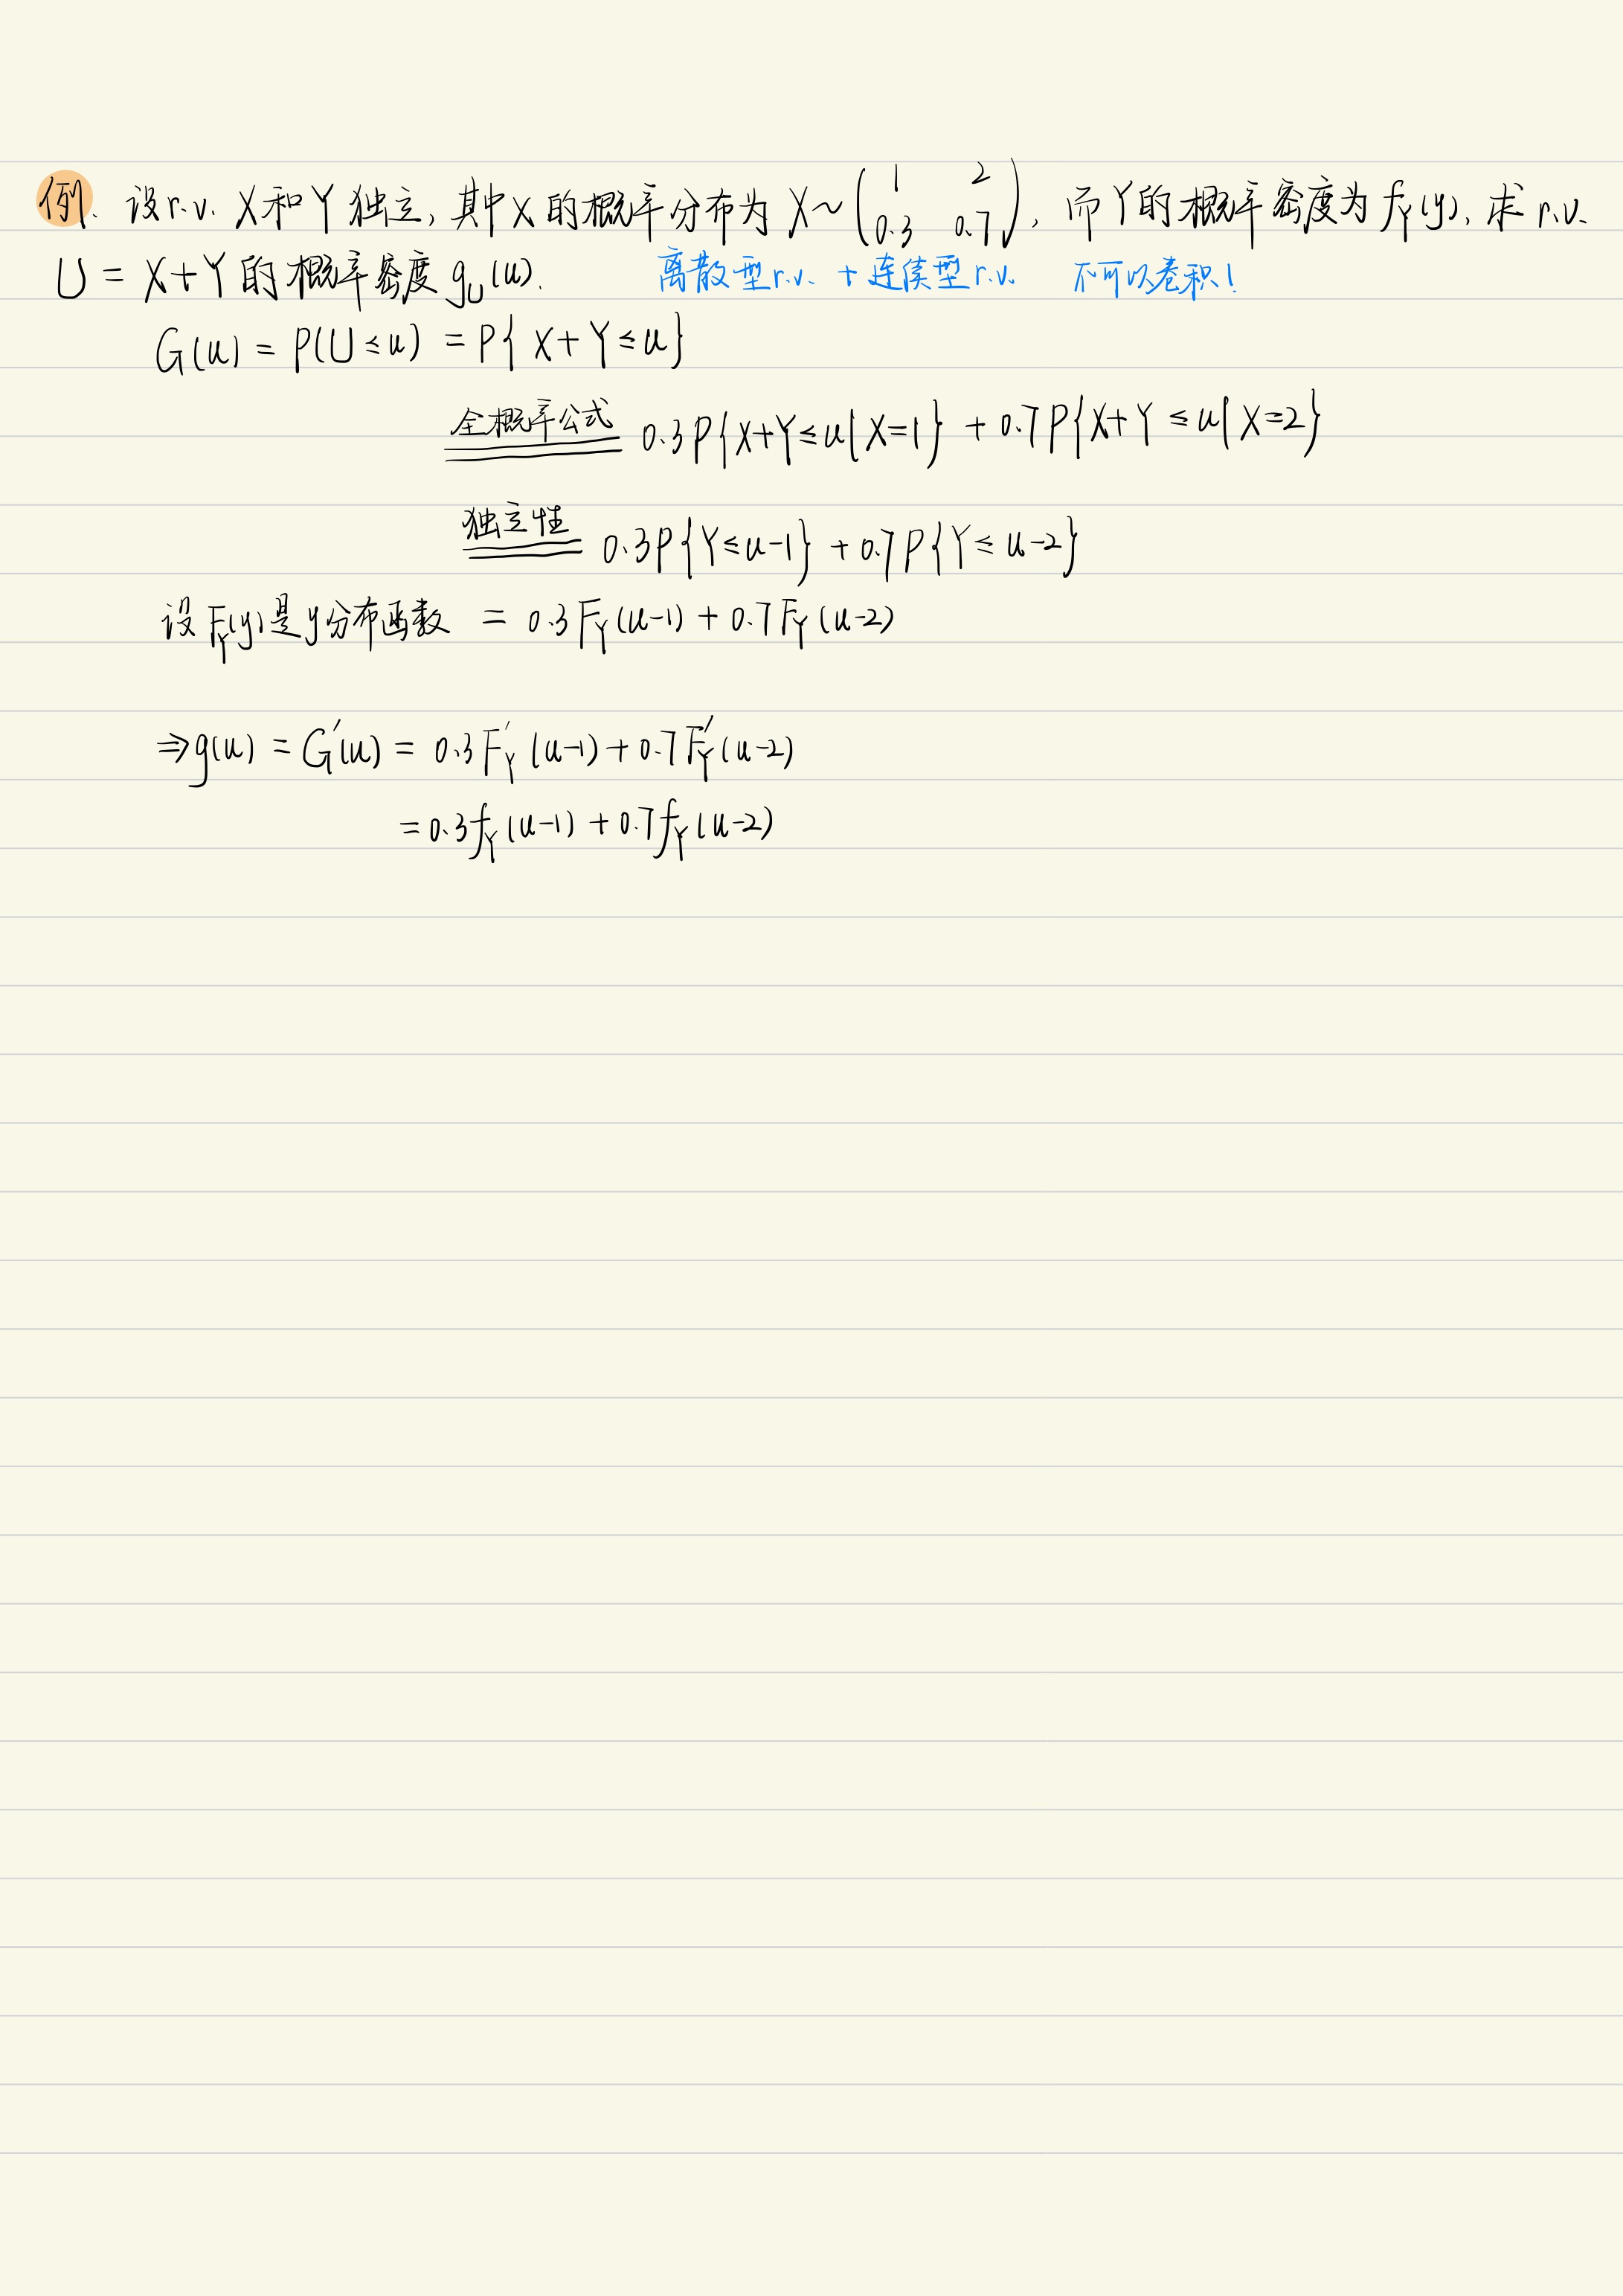 例. 设r.v. X和Y独立, 其中X的概率分布为 X~(1 2 / 0.3 0.7), 而Y的概率密度为f_Y(y), 求 r.v.
U = X+Y的概率密度g_U(u). 离散型r.v. + 连续型r.v. 不可以卷积!
G(u) = P(U≤u) = P{X+Y≤u}
全概率公式 0.3P{X+Y≤u|X=1} + 0.7P{X+Y≤u|X=2}
独立性 0.3P{Y≤u-1} + 0.7P{Y≤u-2}
设F_Y(y)是y分布函数 = 0.3F_Y(u-1) + 0.7F_Y(u-2)
⇒g(u) = G'(u) = 0.3F'_Y(u-1) + 0.7F'_Y(u-2)
= 0.3f_Y(u-1) + 0.7f_Y(u-2)